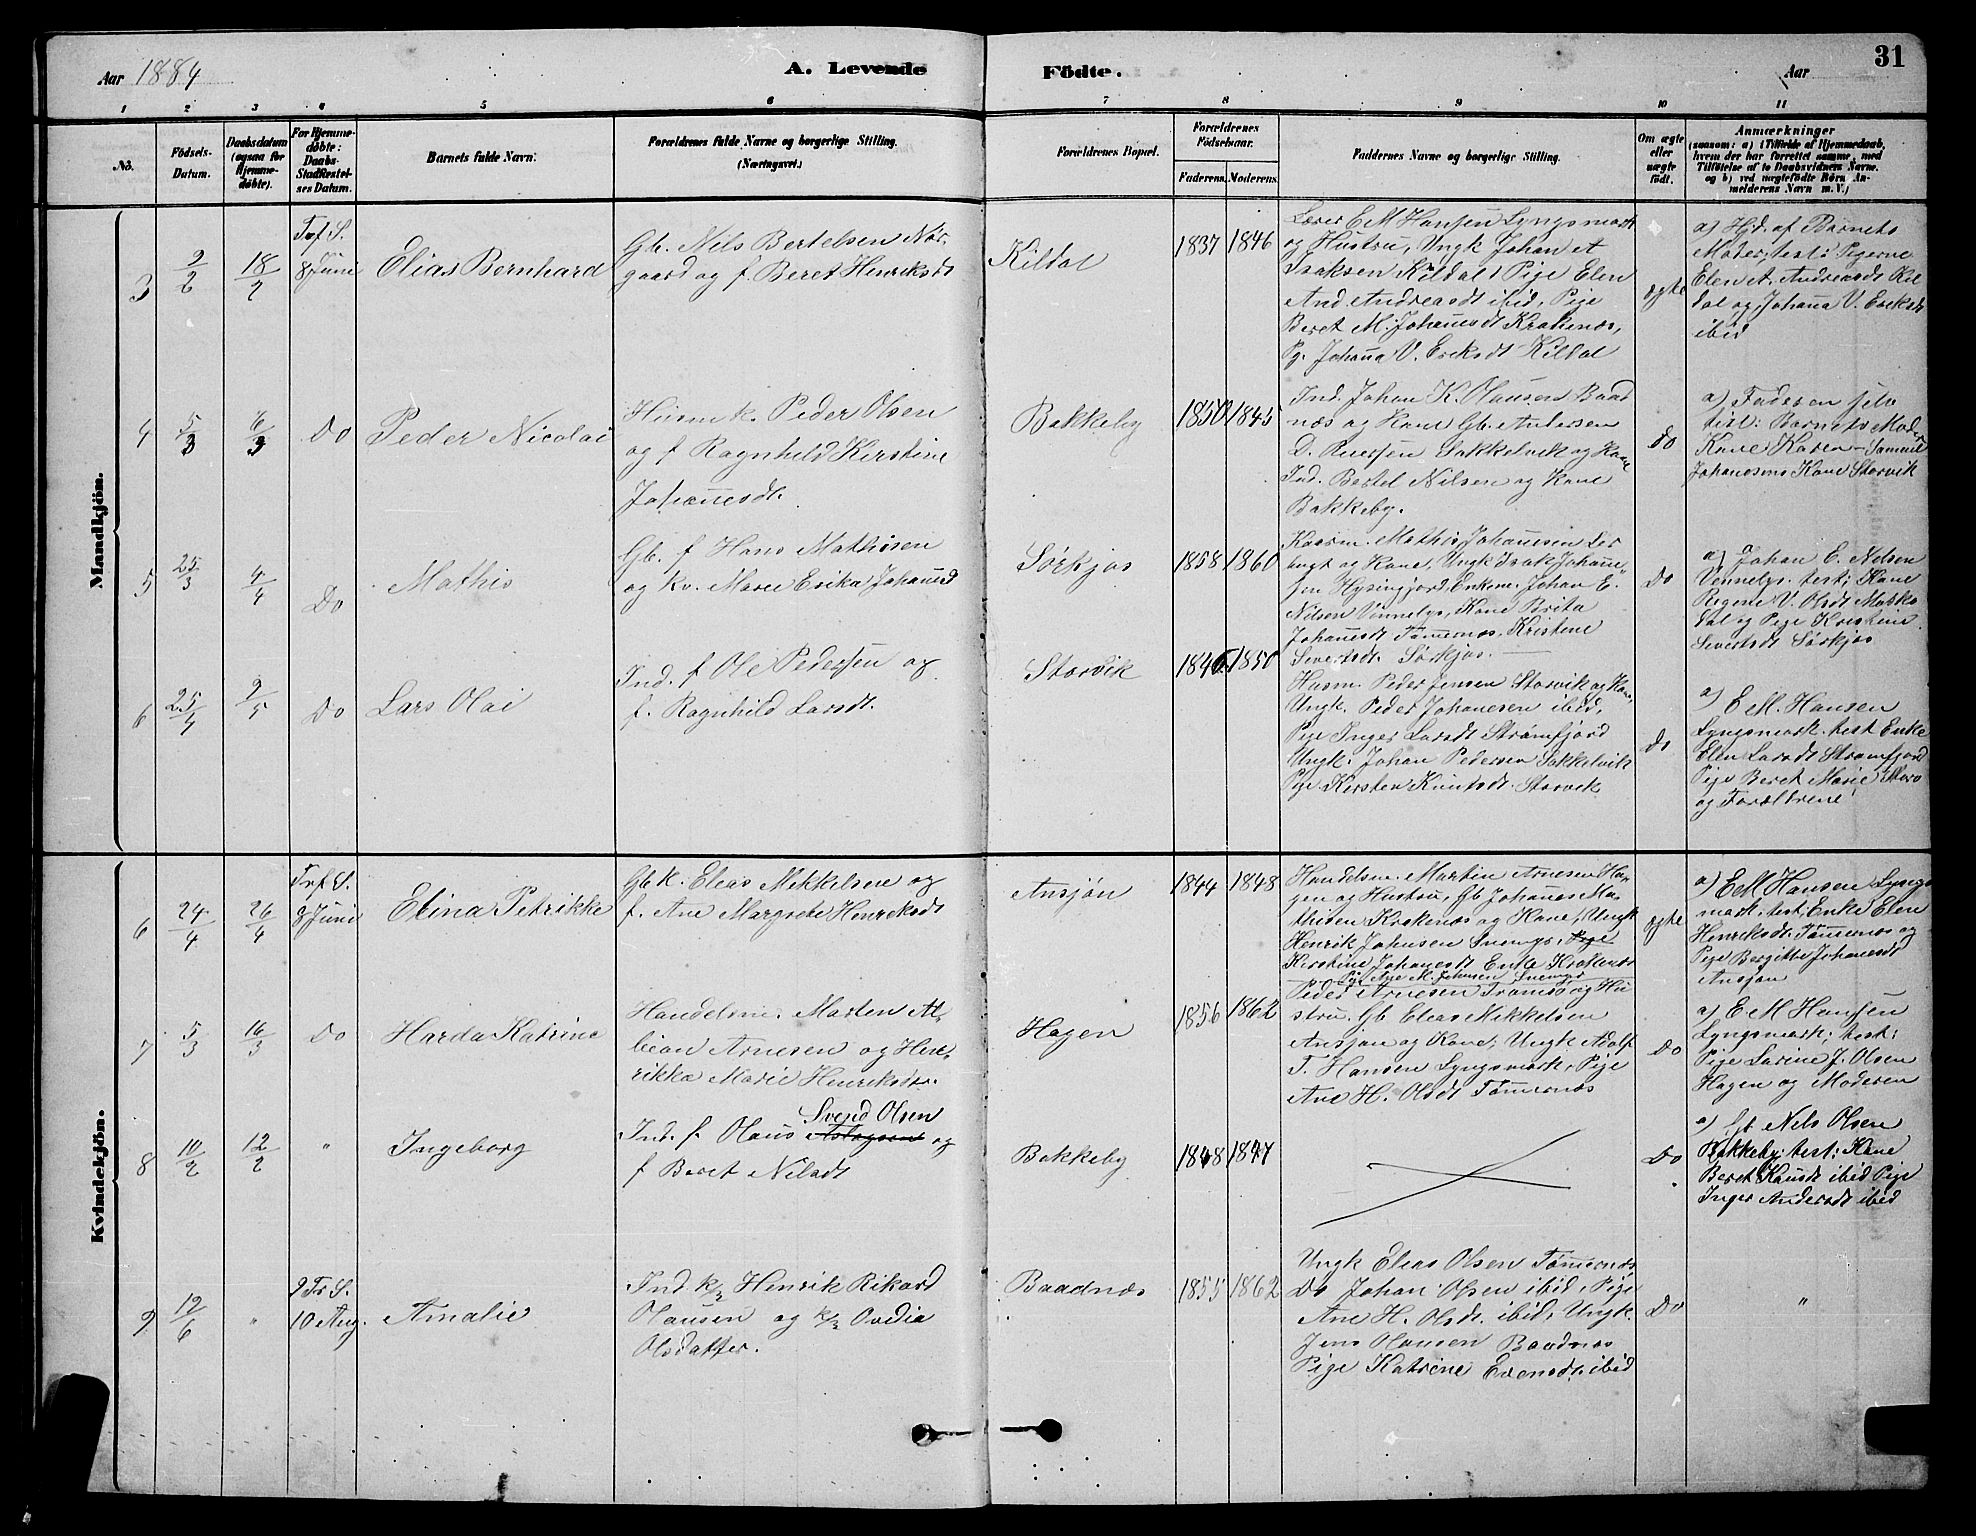 Aar 1884
A. Levende
Födte.
Aar
31
1
2
3
4
5
6
7
8
9
10
11
No.
Födsels-
Datum.
Daabsdatum
(ogsaa for
Hjemme-
döbte).
For Hjemme-
döbte:
Daabs-
Stadfæstel-
ses Datum.
Barnets fulde Navn.
Forældrenes fulde Navne og borgerlige Stilling.
(Næringsvei.)
Forældrenes Bopæl.
Forældrenes
Födselsaar.
Faderens.
Moderens.
Faddernes Navne og borgerlige Stilling.
Om ægte
eller
uægte
födt.
Anmærkninger
(saasom: a) i Tilfælde af Hjemmedaab,
hvem der har forrettet samme, med
Tilföielse af to Daabsvidners Navne.
og b) ved uægtefödte Börn An-
melderens Navn m. V.)
Mandkjön.
3
2/2
18/2
Tref S.
8 Juni
Elias Bernhard
Gb. Nils Bertelsen Nör-
gaard og f. Beret Henriksdt
Kildal
1837
1846
Lærer E M Hansen Lyngsmark
og Hustru, Ungk Johan et
Isaksen Kildal, Pige Elen
And. Andreasdt ibid, Pige
Beret M. Johannesdt Krakenæs,
Pg. Johanna V. Eriksdt Kildal
ægte
a) Hjd. af Barnets
Moder, test: Pigerne
Elen A. Andreasdt Kil
dal og Johanna V. Eriksdt
ibid
4
5/3
6/3
Do
Peder Nicolai
Husm k. Peder Olsen
og f Ragnhild Kerstine
Johannesdt.
Bakkeby
1850
1845
Ind. Johan K. Olausen Baad
næs og Kone Gb. Andersen
Sakkelvik og Kone
Ind. Bertel Nilsen og Kone
Bakkeby.
Do
a) Faderen selv
test: Barnets Moder
Kone Karen Samuel
Johannesens Kone Storvik
5
25/3
4/4
Do
Mathis
Gb. f Hans Mathisen
og kv. Maree Erika Johannesd
Sörkjos
1858
1860
Kaarm. Mathis Johannesen
bugt og Kone, Ungk Isak Johanne-
sen Hysingjord, Enkem. Johan E.
Nilsen Vinnelys, Kone Brita
Johannesdt Tömernæs, Kristene
Sivertsdt. Sörkjos.
Do
a) Johan E. Nilsen
Vennelys. test; Kone
Regine V. Olsdt
dal og Pige Kristine
Severtsdt Sörkjos
6
25/4
2/5
Do
Lars Olai
Ind. f Ole Pedersen og
f. Ragnhild Larsdt.
Storvik
1846
1850
Husm. Peder Jensen Storvik og Kone,
Ungk. Peder Johannesen ibid,
Pige Inger Larsdt Strömfjord
Ungk. Johan Pedersen Sakkelvik
Pige Kersten Knutsdt. Storvik
Do
a) E M. Hansen
Lyngsmark. test Enke
Elen Larsdt Strömfjord
Pige Beret Marie
og Forældrene
Kvindekjön.
6
24/4
26/4
Tref S.
8 Juni
Elina Petrikke
Gb k. Eleas Mikkelsen og
f. Ane Margrete Henriksdt
Ansjön
1844
1848
Handelsm. Martin Arnesen Ha-
gen og Hustru, Gb Johannes Ma-
thisen Krakenæs og Kone, Ungk
Henrik Johnsen Snemyr, Pige
Kirstine Johannesdt Enke Krakenæs
Pige Ane M. Johnsen Snemyr
ægte
a) E M Hansen Lyngs
mark, test; Enke Elen
Henriksdt. Tömernæs og
Pige Bergitte Johannesdt
Ansjön
7
5/3
16/3
Do
Harda Katrine
Handelsm. Marten Al-
bian Arnesen og Hen-
rikka Marie Henriksdtr.
Hagen
1856
1862
Peder Arnesen Tromsö og Hu-
stru. Gb Eleas Mikkelsen
Ansjön og Kone, Ungk Adolf
T. Hansen Lyngsmark, Pige
Ane H. Olsdt Tömernæs
Do
a) E M Hansen
Lyngsmark; test:
Pige Larine J. Olsen
Hagen og Moderen
8
10/2
12/2
"
Ingeborg
Svend Olsen
Ind. f. Olaus Aslagsen og
f Beret Nilsdt
Bakkeby
1848
1847
Do
a) Gb Nils Olsen
Bakkeby test: Kone
Beret Knusdt ibid Pige
Inger Andersdt ibid
9
12/6
"
9 Tr S.
10 Aug.
Amalie
Ind. k/v Henrik Rikard
Olausen og k/v Ovedia
Olsdatter.
Baadnæs
1855
1862
Ungk Eleas Olsen Tömernæs
Do Johan Olsen ibid, Pige
Ane H. Olsdt. ibid, Ungk.
Jens Olausen Baadnæs
Pige Katrine Evensdt. ibid
Do
"